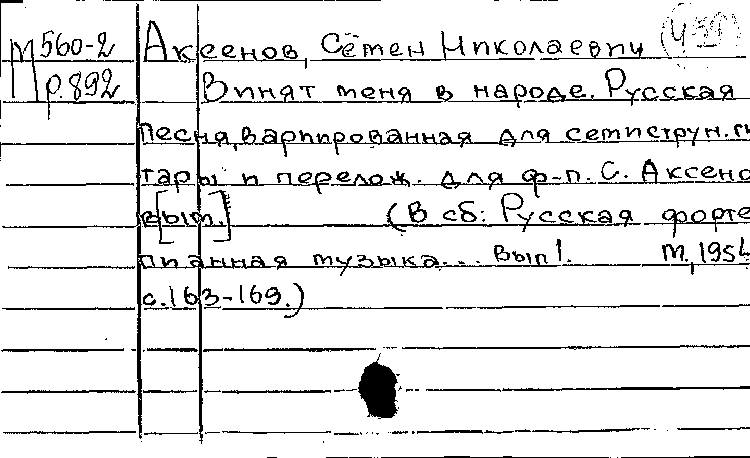 М 560-2
р.892
Аксенов, Сётен Николаевич
Винят меня в народе. Русская
песня, варпированная для семиструн. ги
тары и перелож. для ф-п. С. Аксено
в[ым.] (В сб: Русская форте
пианная музыка... Вып 1. М., 195
с. 163-169.)